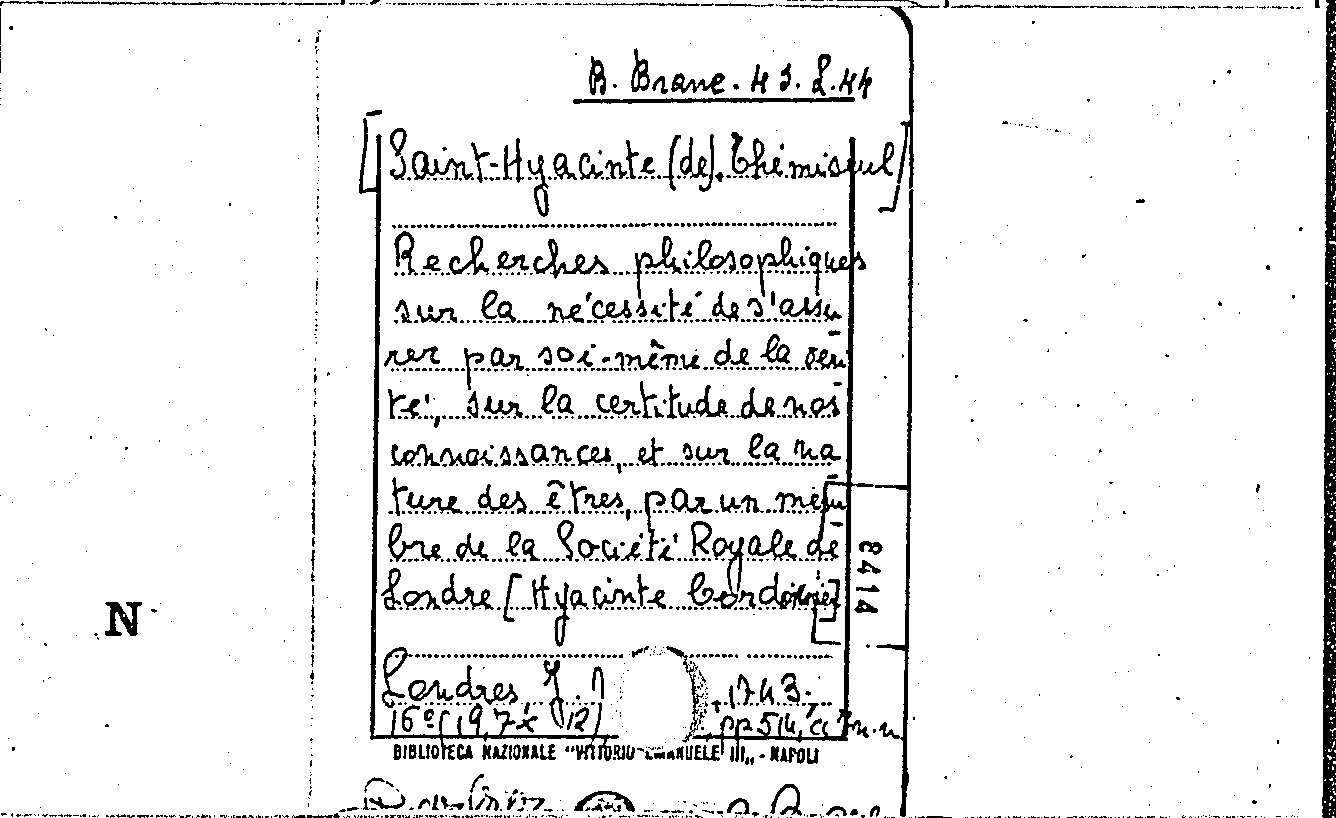 B. Branc. 43. L. 44
[Saint-Hyacinte (de). Thémiseul]
Recherches philosophiques
sur la nécessité de s'assu
rer par soi-même de la veri
té, sur la certitude de nos
connaissances, et sur la na
ture des êtres, par un mem
bre de la Société Royale de
Londre [Hyacinte Cordonnier]
8414
N
Londres, J. 1743.
16º (19,7 x 12) pp 514, cc n.n.
BIBLIOTECA NAZIONALE "VITTORIO EMANUELE III„ - NAPOLI